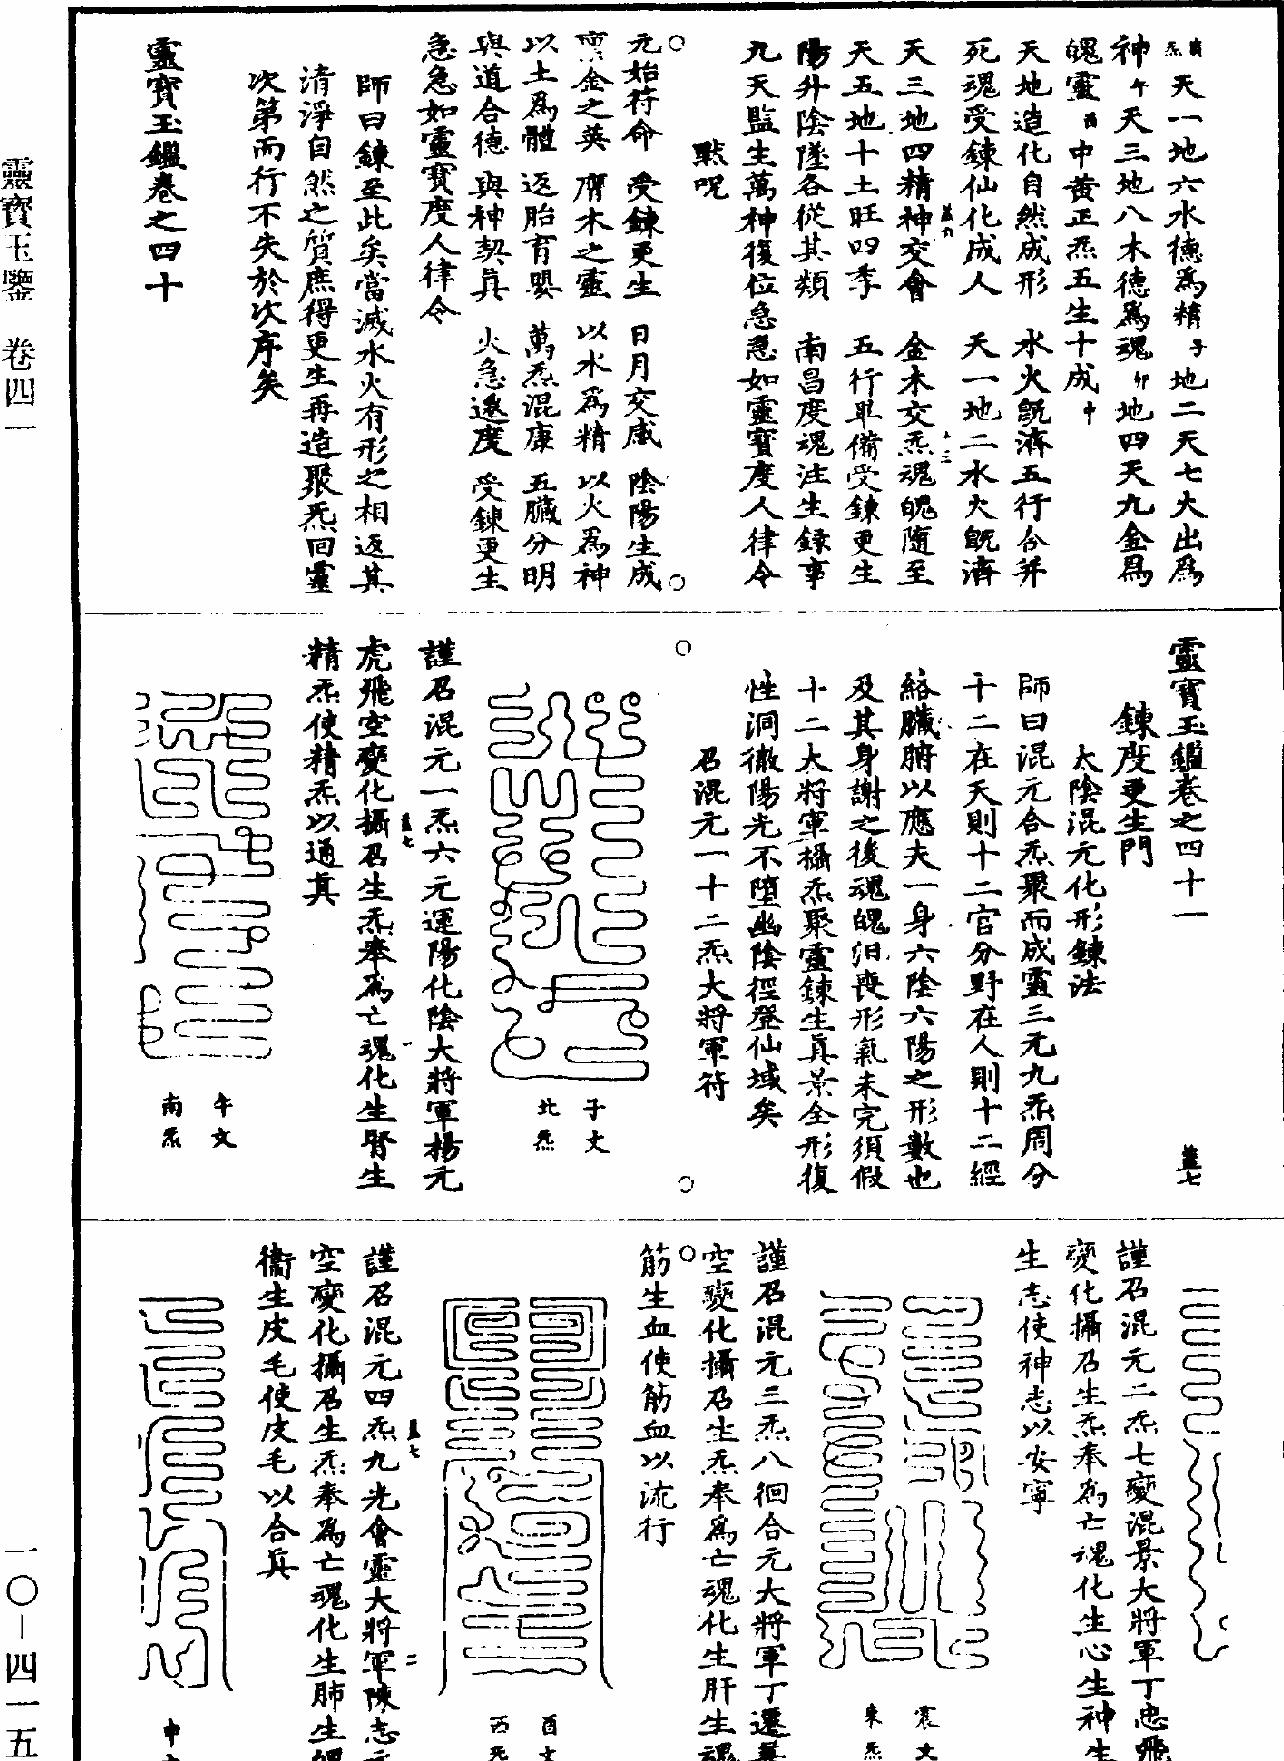 炁天一地六水德爲精子地二天七火出爲
神午天三地八木德爲魂卯地四天九金爲
魄靈酉中黄正炁五生十成中
天地造化自然成形　水火旣濟五行合并
死魂受鍊仙化成人　天一地二水火旣濟
天三地四精神交會　金木交炁魂魄隨至
天五地十土旺四季　五行畢備受鍊更生
陽升陰墜各從其類　南昌度魂注生録事
九天監生萬神復位急急如靈寶度人律令
點呪
元始符命　受鍊更生　日月交感　陰陽生成
禀金之英　膺木之靈　以水爲精　以火爲神
以土爲體　返胎育嬰　萬炁混康　五臟分明
與道合德　與神契眞　火急遷度　受鍊更生
急急如靈寶度人律令
師曰鍊至此矣當滅水火有形之相返其
清淨自然之質庶得更生再造聚炁回靈
次第而行不失於次序矣
靈寶玉鑑卷之四十
靈寶玉鑑卷之四十一
鍊度更生門
太陰混元化形鍊法
師曰混元合炁聚而成靈三元九炁周分
十二在天則十二官分野在人則十二經
絡臟腑以應夫一身六陰六陽之形數也
及其身謝之後魂魄汨喪形氣未完須假
十二大將軍攝炁聚靈鍊生眞景全形復
性洞徹陽光不墮幽陰徑登仙域矣
召混元一十二炁大將軍符
子文
北炁
謹召混元一炁六元運陽化陰大將軍楊元
虎飛空變化攝召生炁奉爲亡魂化生腎生
精炁使精炁以通眞
午文
南炁
謹召混元二炁七變混景大將軍丁忠飛
變化攝召生炁奉爲亡魂化生心生神生
生志使神志以安寧
震文
東炁
謹召混元三炁八徊合元大將軍丁遷
空變化攝召生炁奉爲亡魂化生肝生魂
筋生血使筋血以流行
酉文
西炁
謹召混元四炁九光會靈大將軍陳志元
空變化攝召生炁奉爲亡魂化生肺生魄
衞生皮毛使皮毛以合眞
申
靈寶玉鑒　卷四一
一〇—四一五